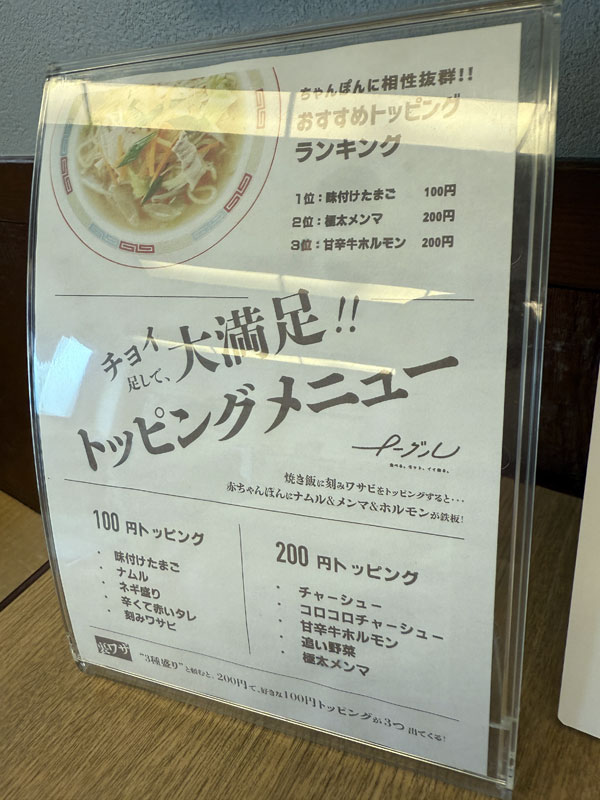 ちゃんぽんに相性抜群!!
おすすめトッピング
ランキング
1位：味付けたまご 100円
2位：極太メンマ 200円
3位：甘辛牛ホルモン 200円
チョイ
足して、大満足!!
トッピングメニュー
焼き飯に刻みワサビをトッピングすると･･･
赤ちゃんぽんにナムル＆メンマ＆ホルモンが鉄板!
100 円トッピング
・ 味付けたまご
・ ナムル
・ ネギ盛り
・ 辛くて赤いタレ
・ 刻みワサビ
200 円トッピング
・ チャーシュー
・ コロコロチャーシュー
・ 甘辛牛ホルモン
・ 追い野菜
・ 極太メンマ
裏ワザ
"3種盛り"と頼むと、200円で、好きな100円トッピングが3つ 出てくる!